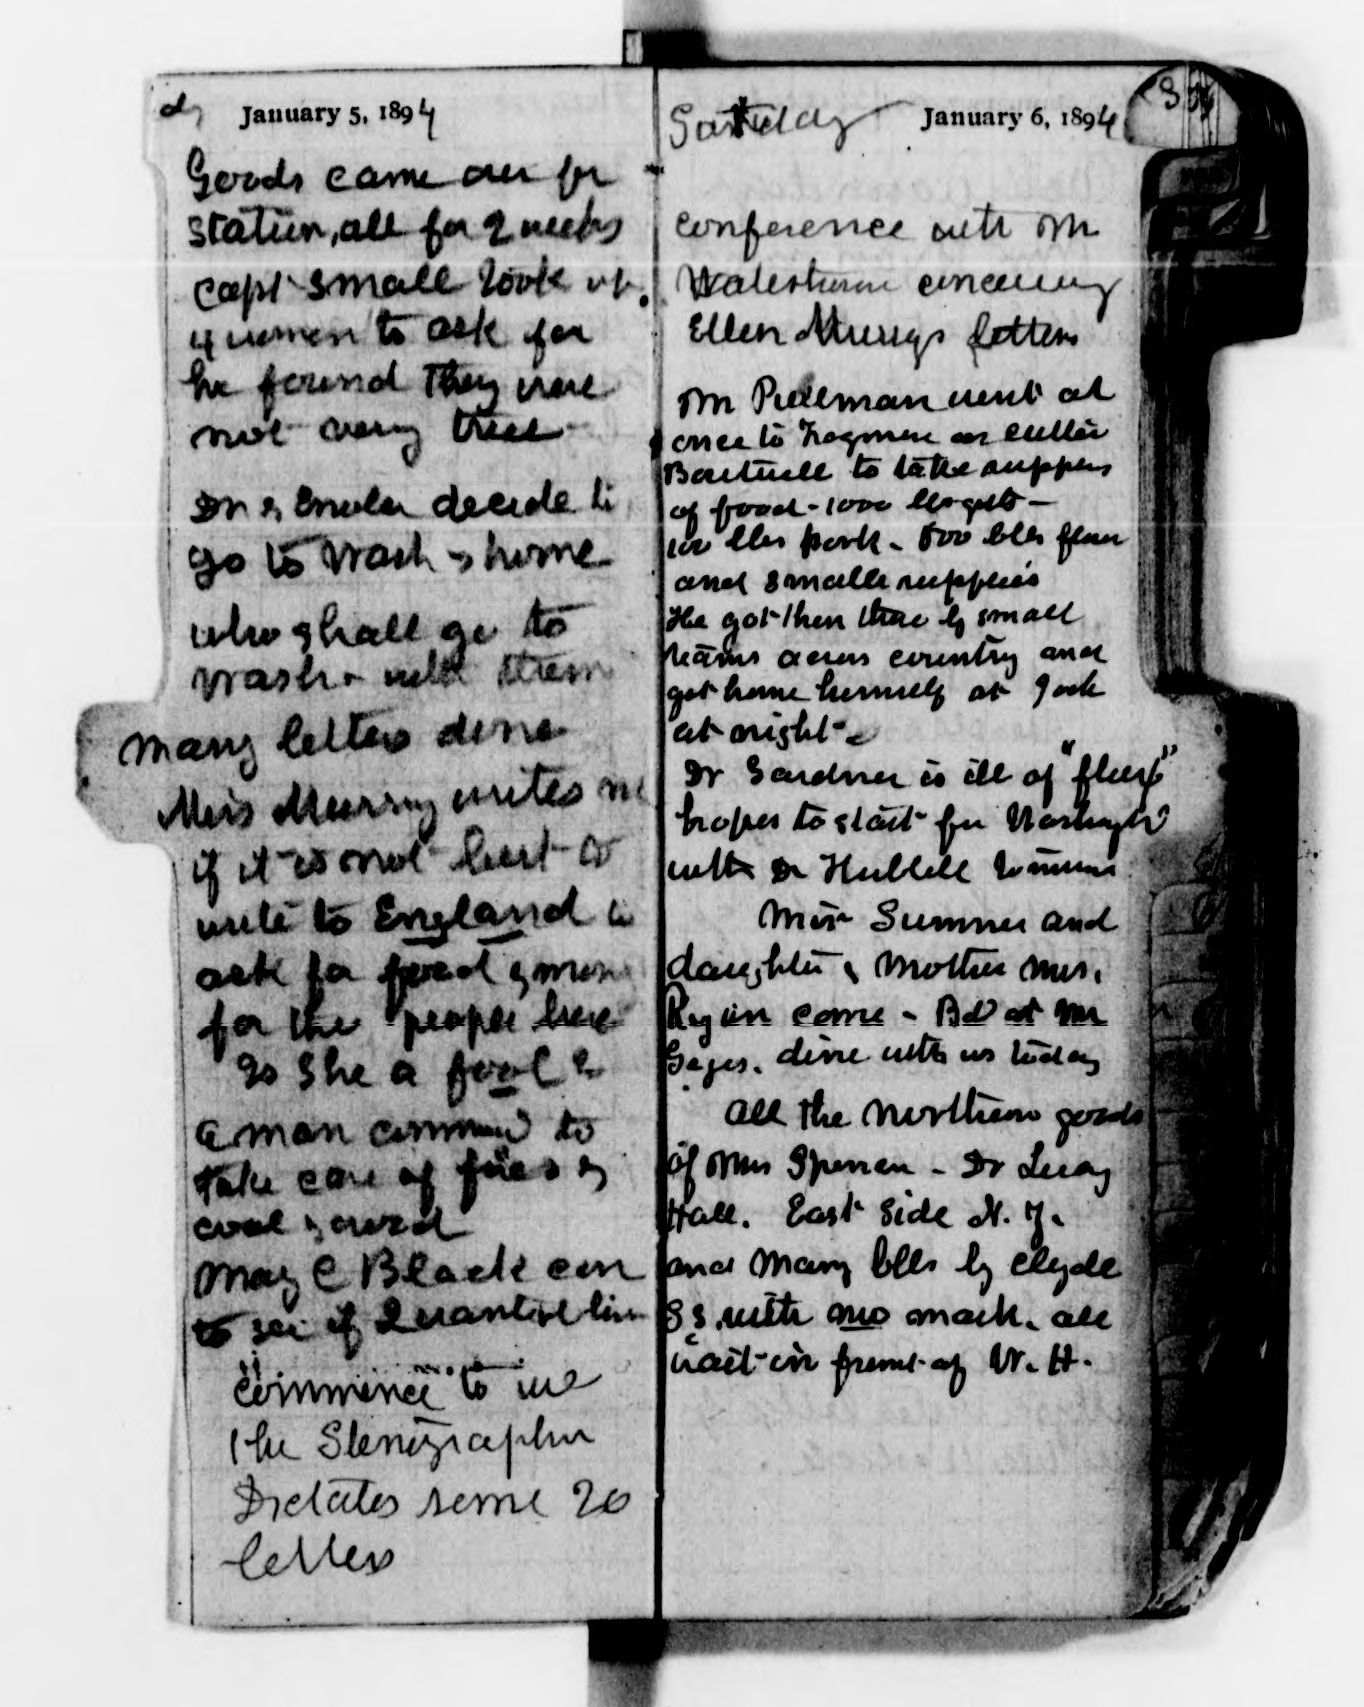 dy January 5, 1894
Goods came over for
station, all for 2 weeks
Capt Small took up
4 women to ask for
he found they were
not very true
Dr & decide to
go to Wash & home
who shall go to
Wash. with them
Many letters done
Miss Murray writes me
if it is not best to
write to England to
ask for food &
for the people here
Is she a fool?
a man commenced to
take care of fires &
coal & wood
May C Black
to see if Quarantine
commence to use
the Stenographer
Dictates some 20
letters
Saturday January 6, 1894
Conference with Mr
concerning
Ellen Murrys letters
Mr Pullman went at
once to on cutter
Boutwell to take
of food -
pork - 500 bbls flour
and smaller supplies
He got them there by small
teams across country and
got home himself at 9 ock
at night -
Dr Gardner is ill of "fleus"
hopes to start for Washington
with Dr Hubbell
Miss Sumner and
daughter & Mother Mrs.
come - Bd at Mr
Gages. dine with us today
All the Northern goods
of Mrs Spencer - Dr Lucy
Hall. East Side N. Y.
and Many bbls by Clyde
SS. with no mark. are
wait in front of W. H.